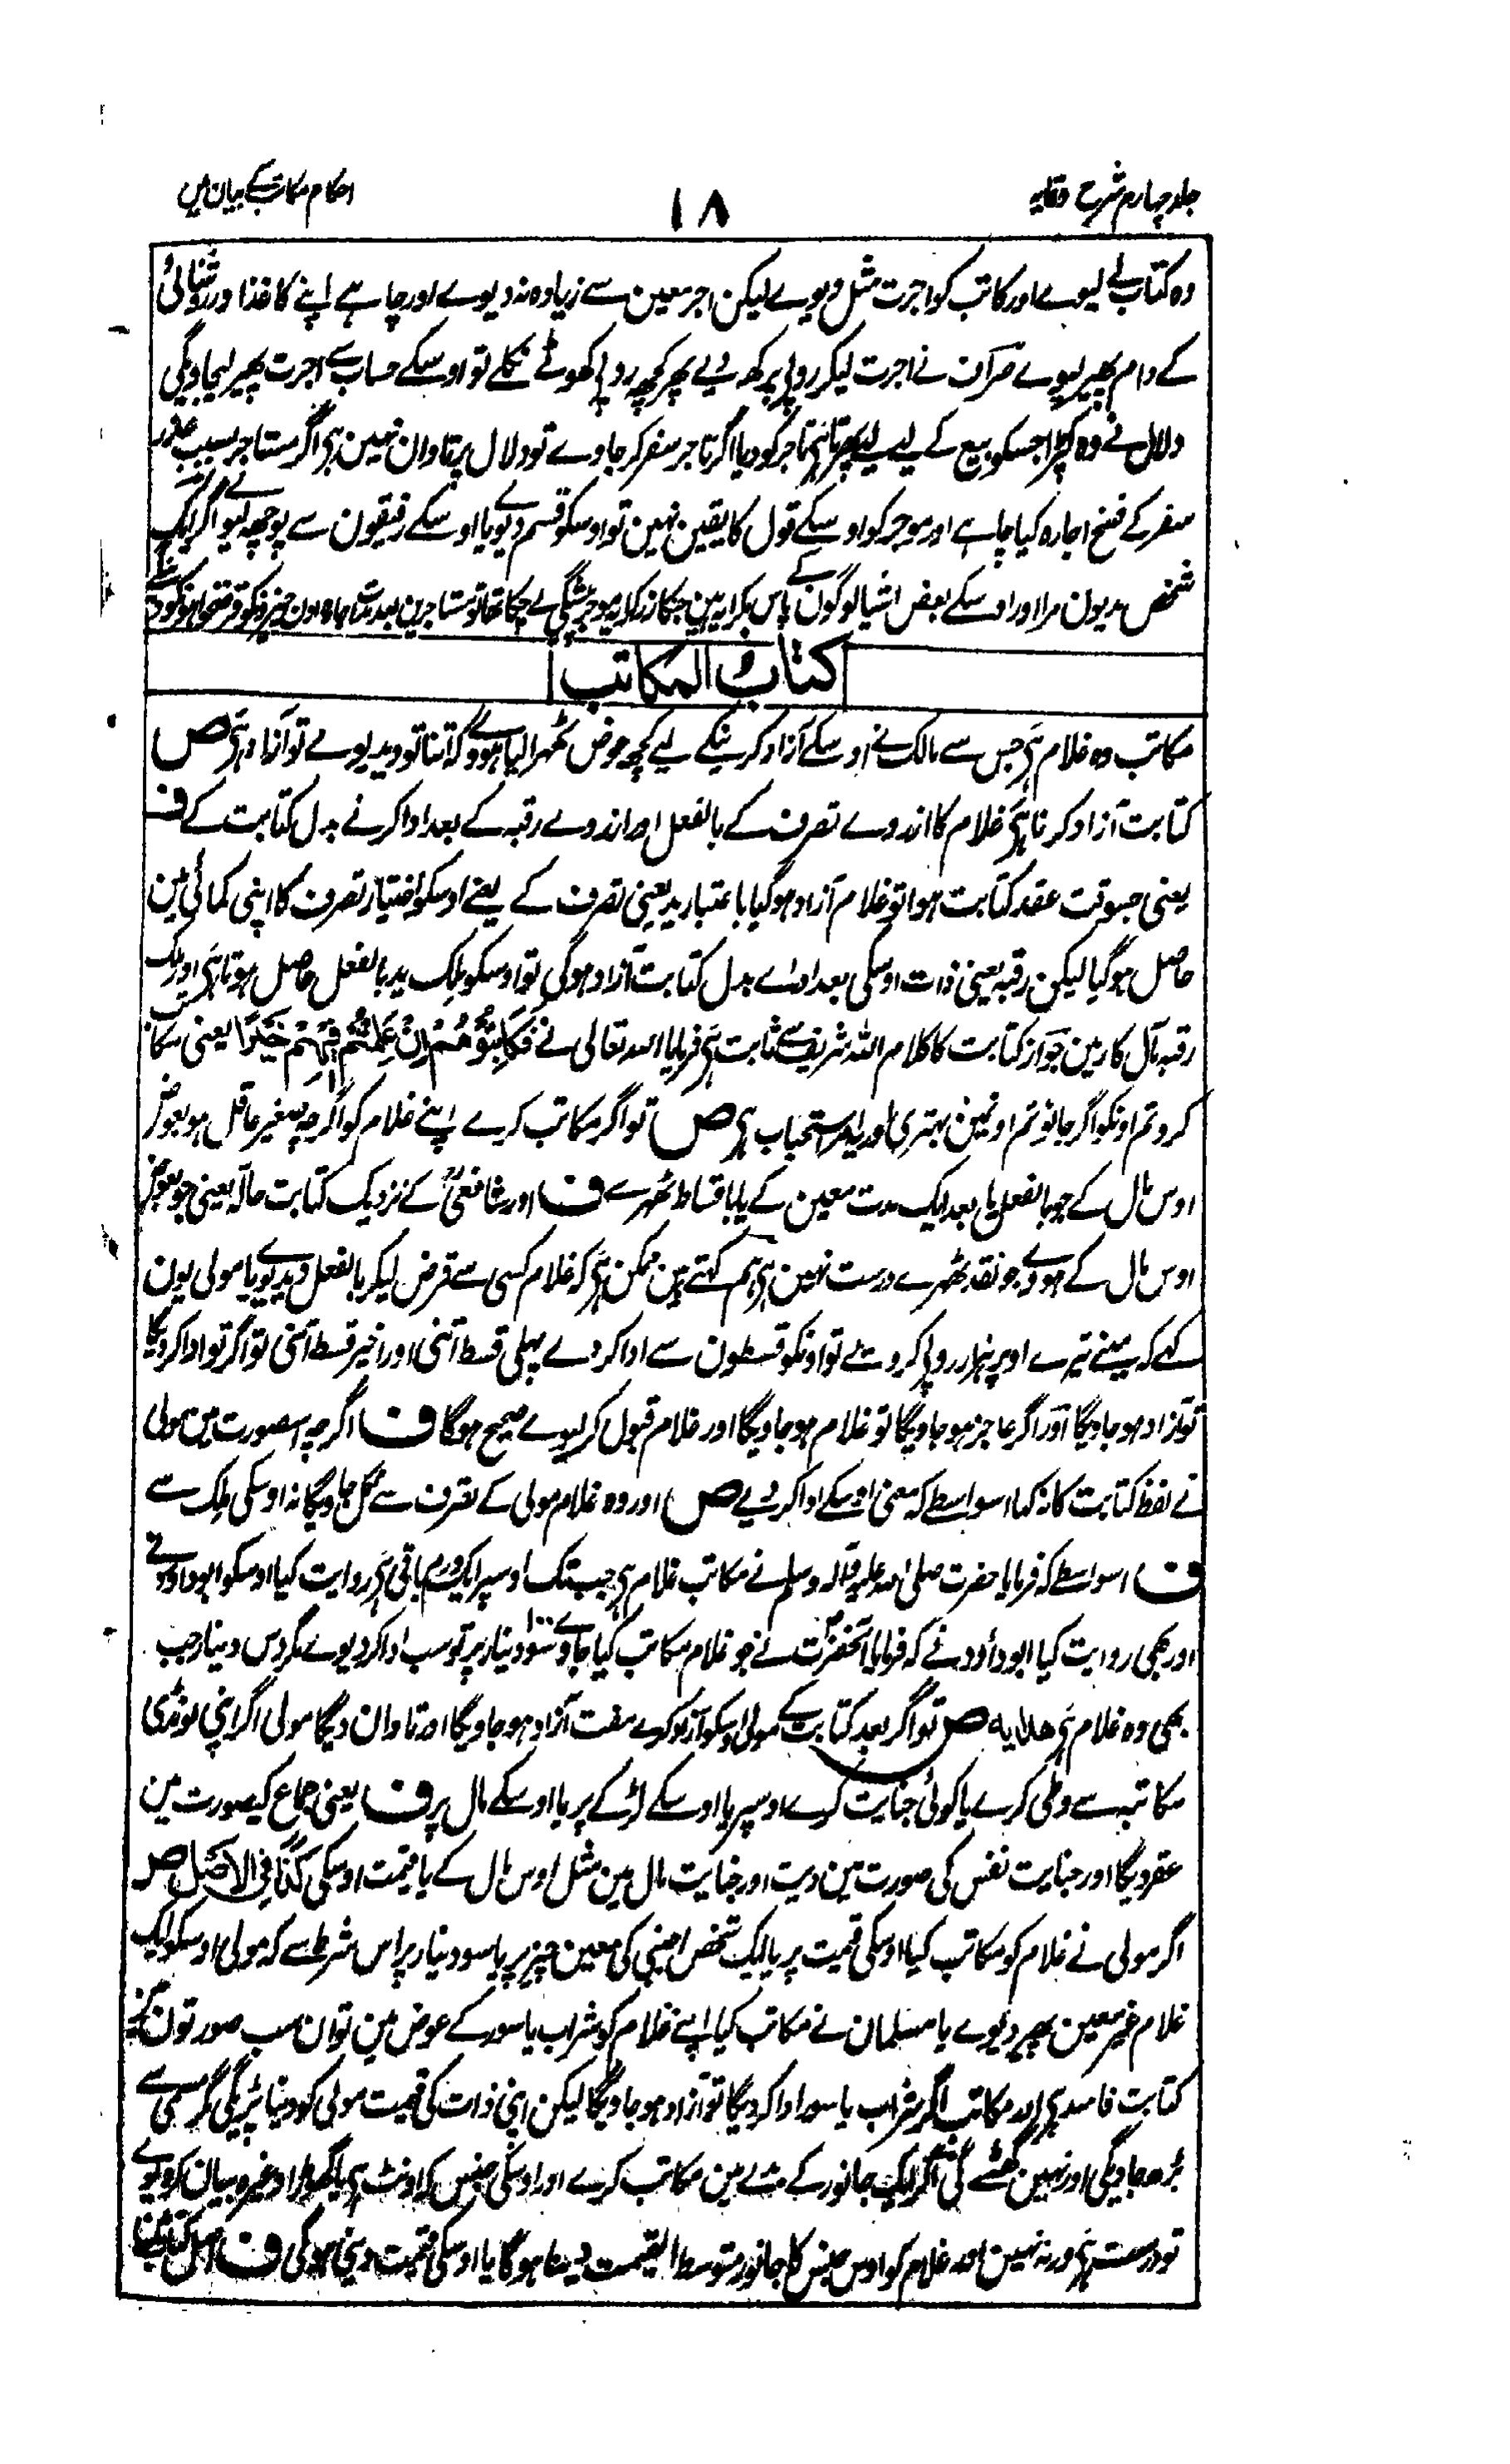 جلد چہارم شرح وقایہ
۱۸
احکام مکاتب کے بیان مین
وہ کتاب لے لیوے اور کاتب کو اجرت مثل دیوے لیکن اجر معین سے زیادہ نہ دیوے اور چاہے اپنے کاغذ اور روشنائی
کے دام پھیر لیوے صراف نے اجرت لیکر روپے پرکھ دیے پھر کچھ روپے کھوٹے نکلے تو اوسکے حساب سے اجرت پھیر لیجاویگی
دلال نے وہ کپڑا جسکو بیع کے لیے لیے پھرتا ہی تاجر کو دیا اگر تاجر سفر کر جاوے تو دلال پر تاوان نہین ہی اگر مستاجر بسبب عذر
سفر کے فسخ اجارہ کیا چاہے اور موجر کو اوسکے قول کا یقین نہین تو اوسکو قسم دیوے یا اوسکے رفیقون سے پوچھ لیوے اگر ایک
شخص مدیون مرا اور اوسکے بعض اشیا لوگون کے پاس بکرایہ ہین جنکا زر کرایہ موجر پیشگی لے چکا تھا تو مستاجرین بعد
کتاب المکاتب
مکاتب وہ غلام ہی جس سے مالک نے اوسکے آزاد کرنیکے لیے کچھ عوض ٹھہرا لیا ہووے کہ اتنا تو دیدیوے تو آزاد ہی ص
کتابت آزاد کرنا ہی غلام کا از روے تصرف کے بالفعل اور از روے رقبہ کے بعد ادا کرنے بدل کتابت کے ف
یعنی جسوقت عقد کتابت ہوا تو غلام آزاد ہوگیا باعتبار ید یعنی تصرف کے یعنے اوسکو اختیار تصرف کا اپنی کمائی مین
حاصل ہوگیا لیکن رقبہ یعنی ذات اوسکی بعد اداے بدل کتابت آزاد ہوگی تو اوسکو ملک ید بالفعل حاصل ہوتا ہی اور ملک
رقبہ مآل کار مین جواز کتابت کا کلام اللہ شریف سے ثابت ہی فرمایا اللہ تعالی نے فَکَاتِبُوْهُمْ اِنْ عَلِمْتُمْ فِیْهِمْ خَیْرًا یعنی مکاتب
کرو تم اونکو اگر جانو تم اونمین بہتری اور یہ امر استحباب ہی ص تو اگر مکاتب کرے اپنے غلام کو اگرچہ صغیر عاقل ہو بعوض
اوس مال کے جو بالفعل یا بعد ایک مدت معین کے یا باقساط ٹھہرے ف اور شافعیؒ کے نزدیک کتابت حالّہ یعنی جو بعوض
اوس مال کے ہووے جو نقد ٹھہرے درست نہین ہی ہم کہتے ہین ممکن ہی کہ غلام کسی سے قرض لیکر بالفعل دیدیوے یا مولی یون
کہے کہ مینے تیرے اوپر ہزار روپے کر دیے تو اونکو قسطون سے ادا کر دے پہلی قسط اتنی اور اخیر قسط اتنی تو اگر تو ادا کردیگا
تو آزاد ہو جاویگا اور اگر عاجز ہو جاویگا تو غلام ہو جاویگا اور غلام قبول کر لیوے صحیح ہوگا ف اگرچہ اسصورت مین مولی
نے لفظ کتابت کا نہ کہا اسواسطے کہ معنی اوسکے ادا کر دیے ص اور وہ غلام مولی کے تصرف سے نکل جاویگا نہ اوسکی ملک سے
ف اسواسطے کہ فرمایا حضرت صلی اللہ علیہ وآلہ وسلم نے مکاتب غلام ہی جب تک اوسپر ایک درم باقی ہی روایت کیا اوسکو ابو داؤد نے
اور بھی روایت کیا ابو داؤد نے کہ فرمایا آنحضرتؐ نے جو غلام مکاتب کیا جاوے سو ۱۰۰ دینار پر تو سب ادا کر دیوے مگر دس دینار جب
بھی وہ غلام ہی ھدایہ ص تو اگر بعد کتابت کے مولی اوسکو آزاد کر دے مفت آزاد ہو جاویگا اور تاوان دیگا مولی اگر اپنی لونڈی
مکاتبہ سے وطی کرے یا کوئی جنایت کرے اوسپر یا اوسکے لڑکے پر یا اوسکے مال پر ف یعنی جماع کیصورت مین
عقر دیگا اور جنایت نفس کی صورت مین دیت اور جنایت مال مین مثل اوس مال کے یا قیمت اوسکی کَذَا فِی الْاَصْل ص
اگر مولی نے غلام کو مکاتب کیا اوسکی قیمت پر یا ایک شخص اجنبی کی معین چیز پر یا سو دینار پر اس شرط سے کہ مولی اوسکو ایک
غلام غیر معین پھیر دیوے یا مسلمان نے مکاتب کیا اپنے غلام کو شراب یا سور کے عوض مین تو ان سب صورتون مین
کتابت فاسد ہی اور مکاتب اگر شراب یا سور ادا کردیگا تو آزاد ہو جاویگا لیکن اپنی ذات کی قیمت مولی کو دینا پڑیگی مگر مسمی سے
بڑھ جاویگی اور نہین گھٹے گی اگر ایک جانور کے بدلے مین مکاتب کرے اور اوسکی جنس کہ اونٹ ہی یا گھوڑا وغیرہ بیان کر دیوے
تو درست ہی ورنہ نہین اور غلام کو اوس جنس کا جانور متوسط القیمت دینا ہوگا یا اوسکی قیمت دینی ہوگی ف